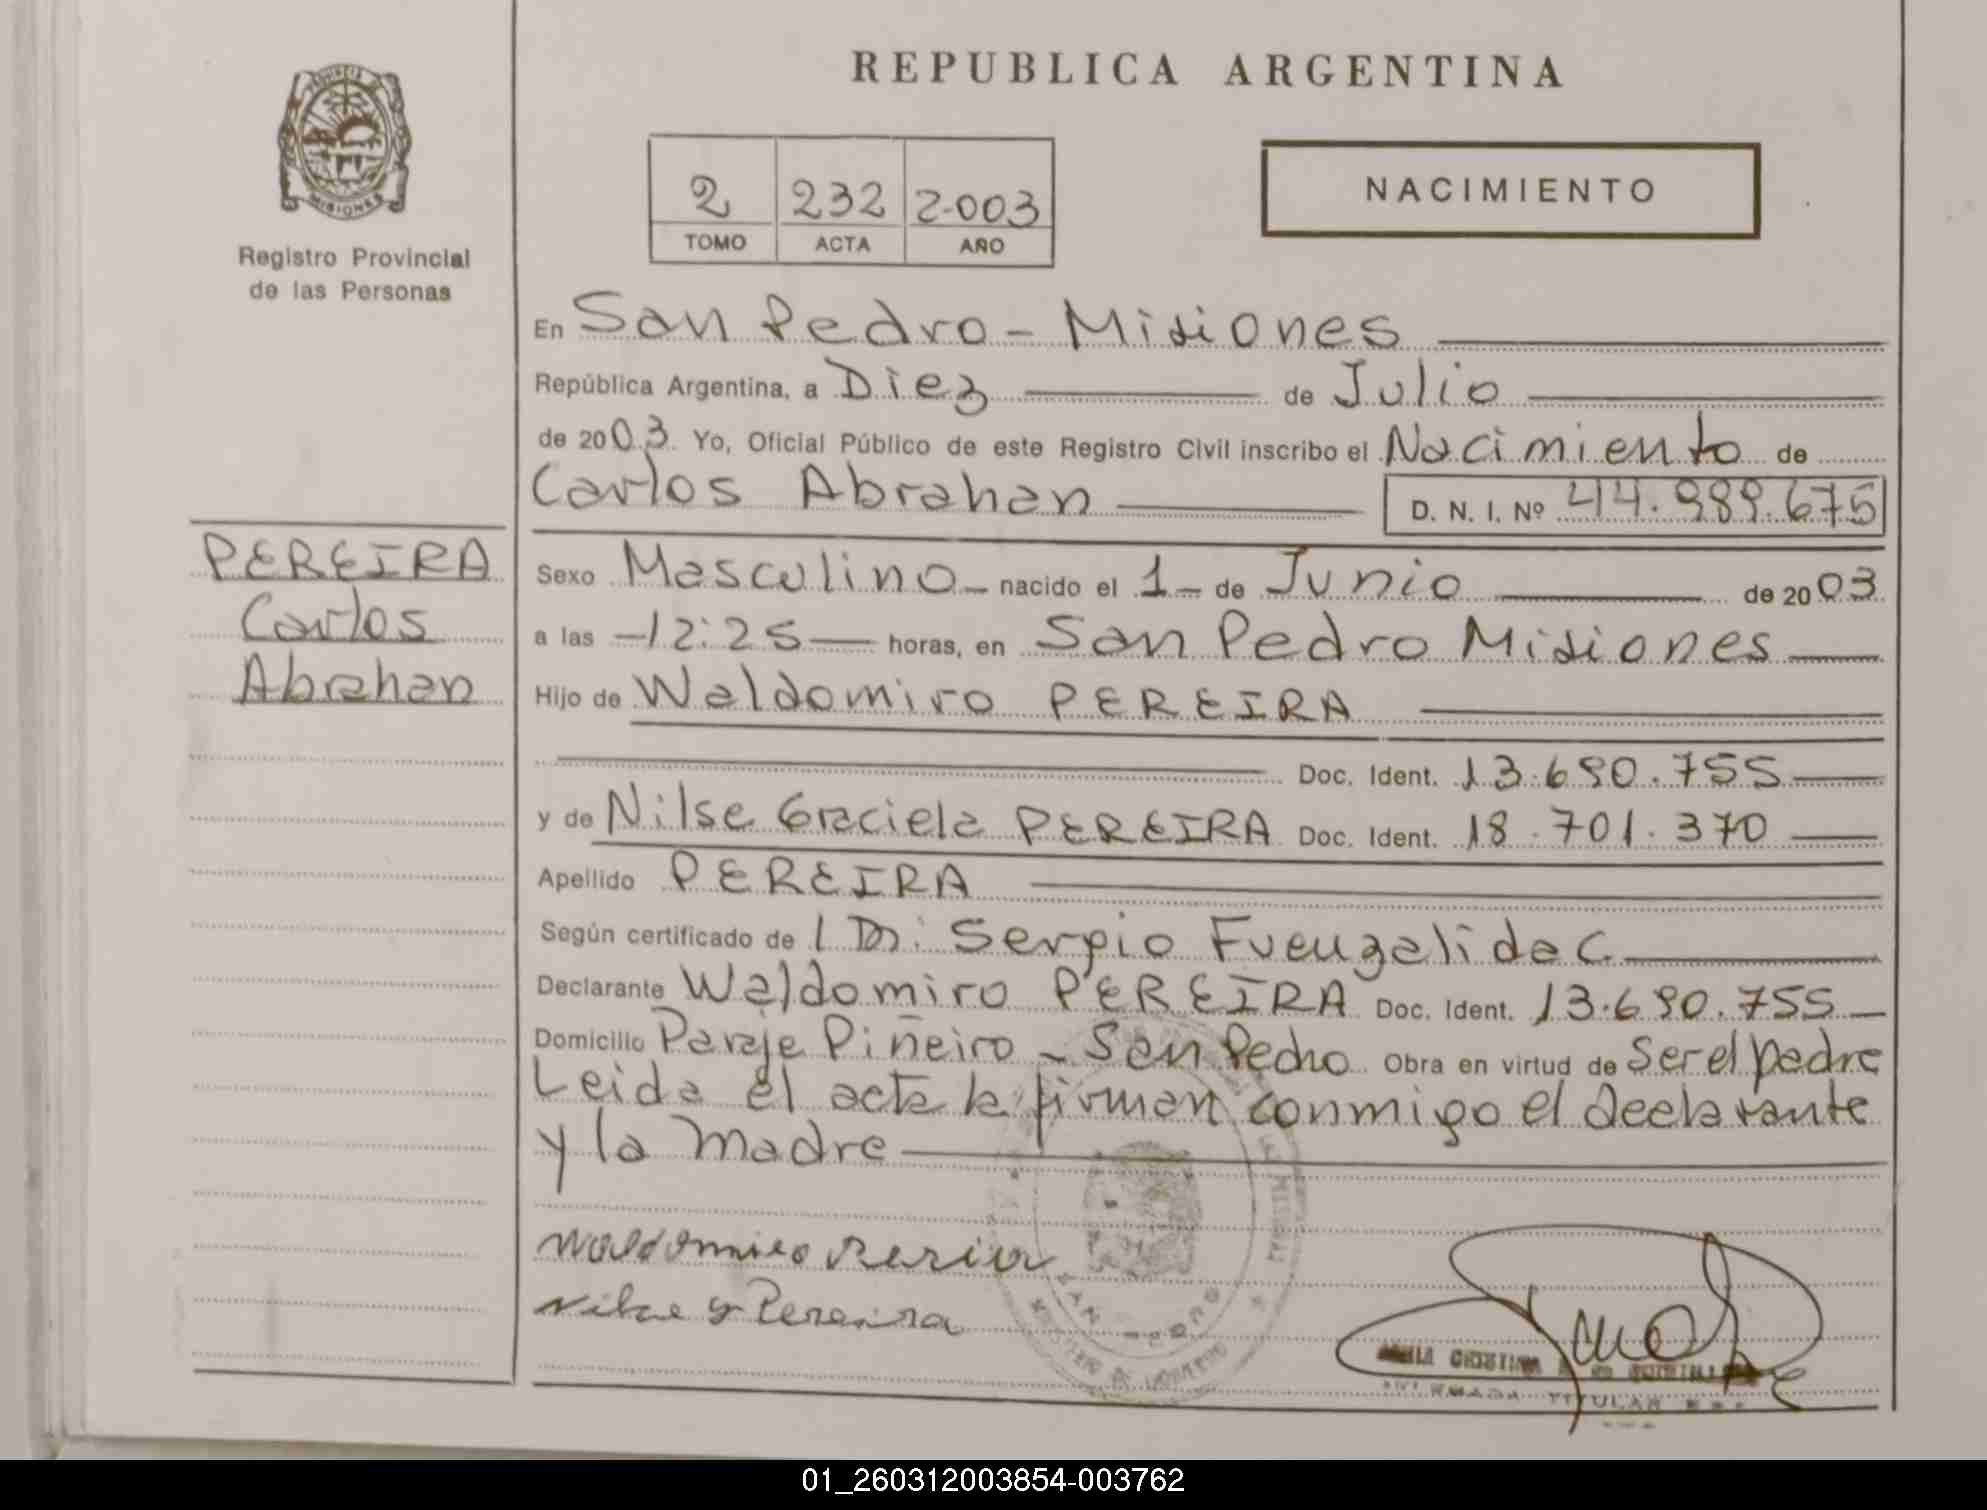 REPUBLICA ARGENTINA
MISIONES
Registro Provincial
de las Personas
2 232 2.003
TOMO ACTA AÑO
NACIMIENTO
En San Pedro - Misiones
República Argentina, a Diez de Julio
de 2003. Yo, Oficial Público de este Registro Civil inscribo el Nacimiento de
Carlos Abrahan D. N. I. Nº 44.989.675
PEREIRA
Carlos
Abrahan
Sexo Masculino - nacido el 1 - de Junio de 2003
a las - 12:25 - horas, en San Pedro Misiones
Hijo de Waldomiro PEREIRA
Doc. Ident. 13.690.755
y de Nilse Graciela PEREIRA Doc. Ident. 18.701.370
Apellido PEREIRA
Según certificado de 1 Dr. Sergio Fuenzalida C.
Declarante Waldomiro PEREIRA Doc. Ident. 13.690.755
Domicilio Paraje Piñeiro - San Pedro Obra en virtud de Ser el padre
Leida el acta la firman conmigo el declarante
y la madre
Waldomiro
Nilse G Pereira
SAN PEDRO
MINISTERIO DE GOBIERNO
CRISTINA
TITULAR
01_260312003854-003762